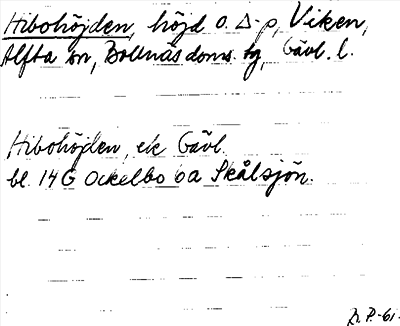 Hibohöjden, höjd o. Δ-p, Viken,
Alfta sn, Bollnäs doms. hg, Gävl. l.
Hibohöjden, ek Gävl.
bl. 14G Ockelbo 6a Skålsjön.
P.-61